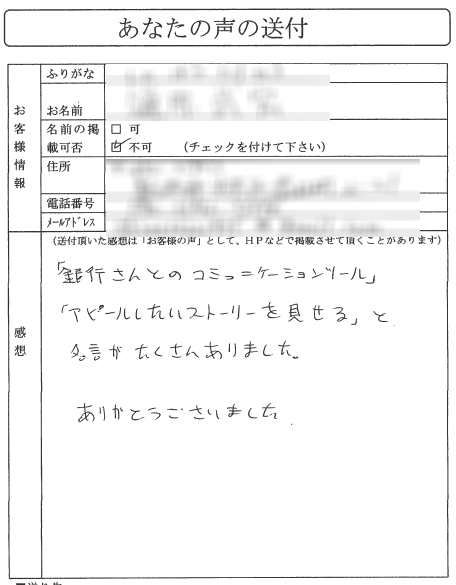 あなたの声の送付
お客様情報
ふりがな
お名前
名前の掲載可否
□ 可
☑ 不可 (チェックを付けて下さい)
住所
電話番号
メールアドレス
感想
(送付頂いた感想は「お客様の声」として、HPなどで掲載させて頂くことがあります)
「銀行さんとのコミュニケーションツール」
「アピールしたいストーリーを見せる」と
名言がたくさんありました。
ありがとうございました.